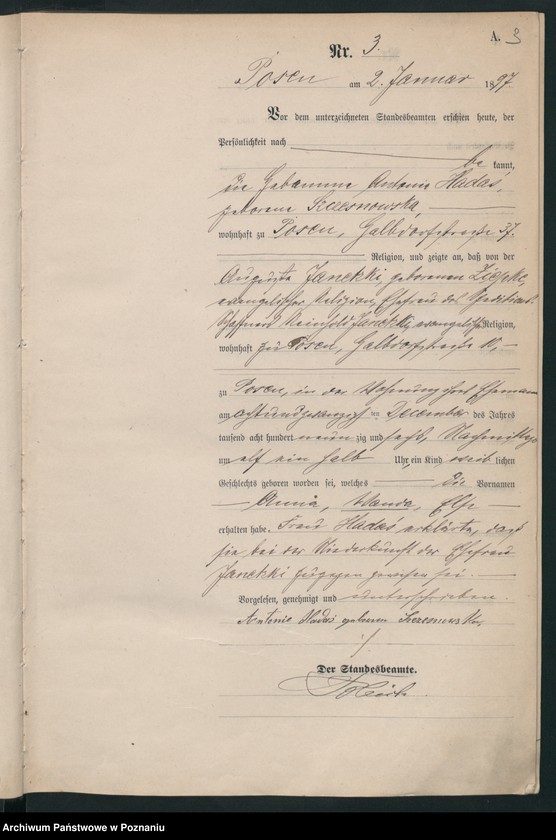 A. 3
Nr. 3.
Posen am 2. Januar 1897
Vor dem unterzeichneten Standesbeamten erschien heute, der
Persönlichkeit nach
be kannt,
die Hebamme Antonie Hadaś,
geborene
wohnhaft zu Posen, Halbdorfstraße 37.
Religion, und zeigte an, daß von der
Auguste Janetzki, geborenen
evangelischer Religion, Ehefrau des
Reinhold Janetzki, evangelischer Religion,
wohnhaft zu Posen, Halbdorfstraße
zu Posen, in der Wohnung ihres Ehemannes
am achtundzwanzigsten December des Jahres
tausend acht hundert neunzig und sechs, Nachmittags
um elf ein halb Uhr ein Kind weiblichen
Geschlechts geboren worden sei, welches die Vornamen
Anna, Wanda, Else
erhalten habe. Frau Hadaś erklärte, daß
sie bei der Niederkunft der Ehefrau
Janetzki zugegen gewesen sei.
Vorgelesen, genehmigt und unterschrieben.
Antonie Hadaś geborene
Der Standesbeamte.
Archiwum Państwowe w Poznaniu